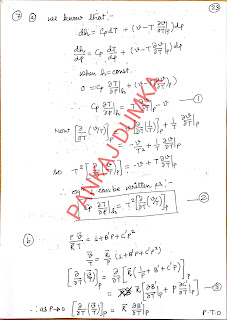 23
⑦ ⓐ we know that :-
dh = CpdT + (v - T ∂v/∂T|p)dp
dh/dp = Cp dT/dp + (v - T ∂v/∂T|p)
when h = const.
0 = Cp ∂T/∂p|h + (v - T ∂v/∂T|p)
∴ Cp ∂T/∂p|h = T ∂v/∂T|p - v — ①
Now [∂/∂T (v/T)]p = v ∂/∂T (1/T)|p + 1/T ∂v/∂T|p
= -v/T² + 1/T ∂v/∂T|p
so T² [∂/∂T (v/T)]p = -v + T ∂v/∂T|p
∴ eqⁿ ① can be written as :-
Cp ∂T/∂p|h = T² [∂/∂T (v/T)]p — ②
ⓑ Pv̄/R̄T = 1 + B'P + C'P²
v̄/T = R̄/P (1 + B'P + C'P²)
[∂/∂T (v̄/T)]p = ∂/∂T [R̄ (1/P + B' + C'P)]p
= R̄ [∂B'/∂T|p + P ∂C'/∂T|p] — ③
∴ as P→0 [∂/∂T (v̄/T)]p = R̄ ∂B'/∂T|p
P.T.O
PANKAJ DUMKA